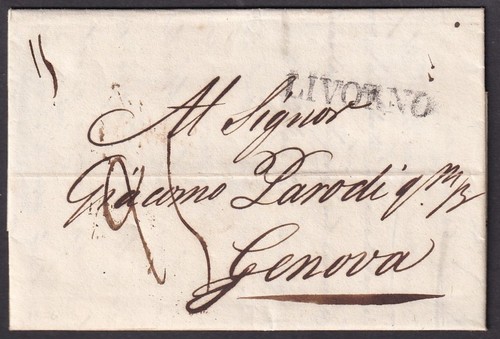 LIVORNO
Al Signor
Giacomo Parodi q.m
Genova